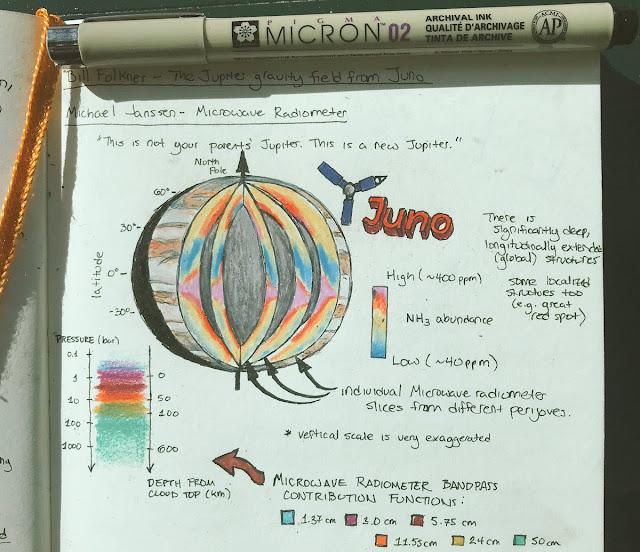 PIGMA
MICRON™ 02
ARCHIVAL INK
QUALITÉ D'ARCHIVAGE
TINTA DE ARCHIVE
ACME
AP
Bill Folkner - The Jupiter gravity field from Juno
Michael Janssen - Microwave Radiometer
"This is not your parents' Jupiter. This is a new Jupiter."
North
Pole
60°
30°
0°
-30°
latitude
Juno
There is
significantly deep,
longitudinally extended
(global) structures
some localized
structures too
(e.g. great
red spot)
High (~400ppm)
NH3 abundance
Low (~40ppm)
individual Microwave radiometer
slices from different perijoves.
* vertical scale is very exaggerated
PRESSURE (bar)
0.1
1
10
100
1000
0
50
100
600
DEPTH FROM
CLOUD TOP (km)
MICROWAVE RADIOMETER BANDPASS
CONTRIBUTION FUNCTIONS:
1.37cm 3.0cm 5.75 cm
11.55cm 24cm 50cm